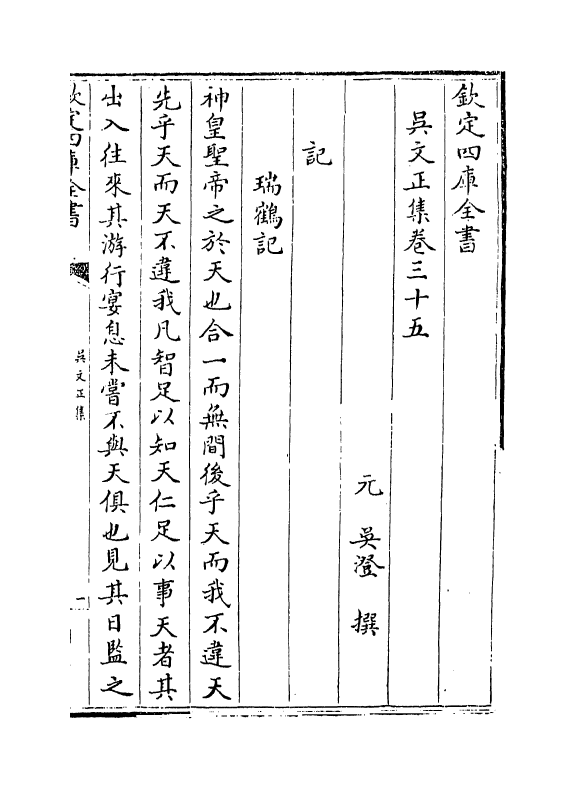 欽定四庫全書
吳文正集卷三十五
元 吳澄 撰
記
瑞鶴記
神皇聖帝之於天也合一而無間後乎天而我不違天
先乎天而天不違我凡智足以知天仁足以事天者其
出入往來其游行宴息未嘗不與天俱也見其日監之
欽定四庫全書
吳文正集
一